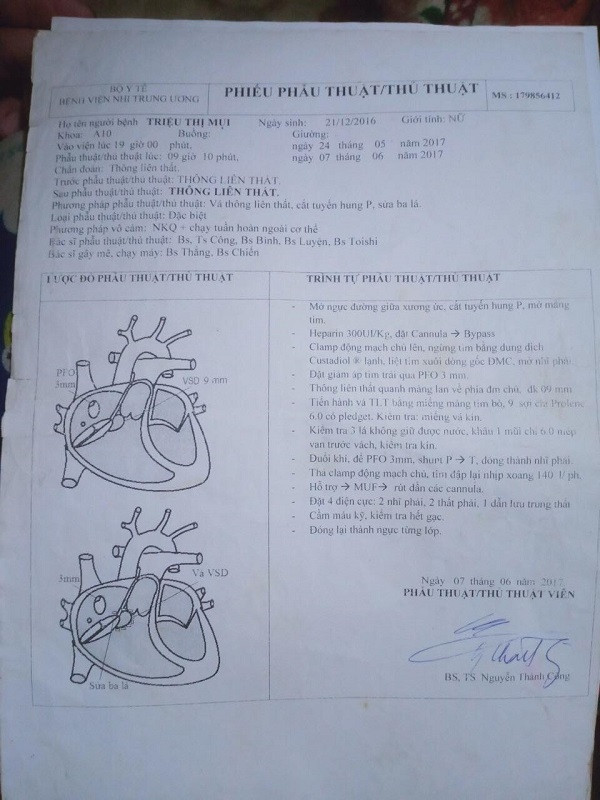 BỘ Y TẾ
BỆNH VIỆN NHI TRUNG ƯƠNG
PHIẾU PHẪU THUẬT/THỦ THUẬT
MS : 179856412
Họ tên người bệnh TRIỆU THỊ MỤI Ngày sinh: 21/12/2016 Giới tính: NỮ
Khoa: A10 Buồng: Giường:
Vào viện lúc 19 giờ 00 phút, ngày 24 tháng 05 năm 2017
Phẫu thuật/thủ thuật lúc: 09 giờ 10 phút, ngày 07 tháng 06 năm 2017
Chẩn đoán: Thông liên thất.
Trước phẫu thuật/thủ thuật: THÔNG LIÊN THẤT.
Sau phẫu thuật/thủ thuật: THÔNG LIÊN THẤT.
Phương pháp phẫu thuật/thủ thuật: Vá thông liên thất, cắt tuyến hung P, sửa ba lá.
Loại phẫu thuật/thủ thuật: Đặc biệt
Phương pháp vô cảm: NKQ + chạy tuần hoàn ngoài cơ thể
Bác sĩ phẫu thuật/thủ thuật: Bs, Ts Công, Bs Bình, Bs Luyện, Bs Toishi
Bác sĩ gây mê, chạy máy: Bs Thắng, Bs Chiến
LƯỢC ĐỒ PHẪU THUẬT/THỦ THUẬT
PFO
3mm
VSD 9 mm
3mm
Vá VSD
Sửa ba lá
TRÌNH TỰ PHẪU THUẬT/THỦ THUẬT
- Mở ngực đường giữa xương ức, cắt tuyến hung P, mở màng
tim.
- Heparin 300UI/Kg, đặt Cannula → Bypass
- Clamp động mạch chủ lên, ngừng tim bằng dung dịch
Custadiol ® lạnh, liệt tim xuôi dòng gốc ĐMC, mở nhĩ phải.
- Đặt giảm áp tim trái qua PFO 3 mm.
- Thông liên thất quanh màng lan về phía đm chủ, đk 09 mm
- Tiến hành vá TLT bằng miếng màng tim bò, 9 sợi chỉ Prolene
6.0 có pledget. Kiểm tra: miếng vá kín.
- Kiểm tra 3 lá không giữ được nước, khâu 1 mũi chỉ 6.0 mép
van trước vách, kiểm tra kín.
- Đuổi khí, để PFO 3mm, shunt P → T, đóng thành nhĩ phải.
- Thả clamp động mạch chủ, tim đập lại nhịp xoang 140 l/ ph.
- Hỗ trợ → MUF→ rút dần các cannula.
- Đặt 4 điện cực: 2 nhĩ phải, 2 thất phải, 1 dẫn lưu trung thất
- Cầm máu kỹ, kiểm tra hết gạc.
- Đóng lại thành ngực từng lớp.
Ngày 07 tháng 06 năm 2017
PHẪU THUẬT/THỦ THUẬT VIÊN
BS, TS. Nguyễn Thành Công